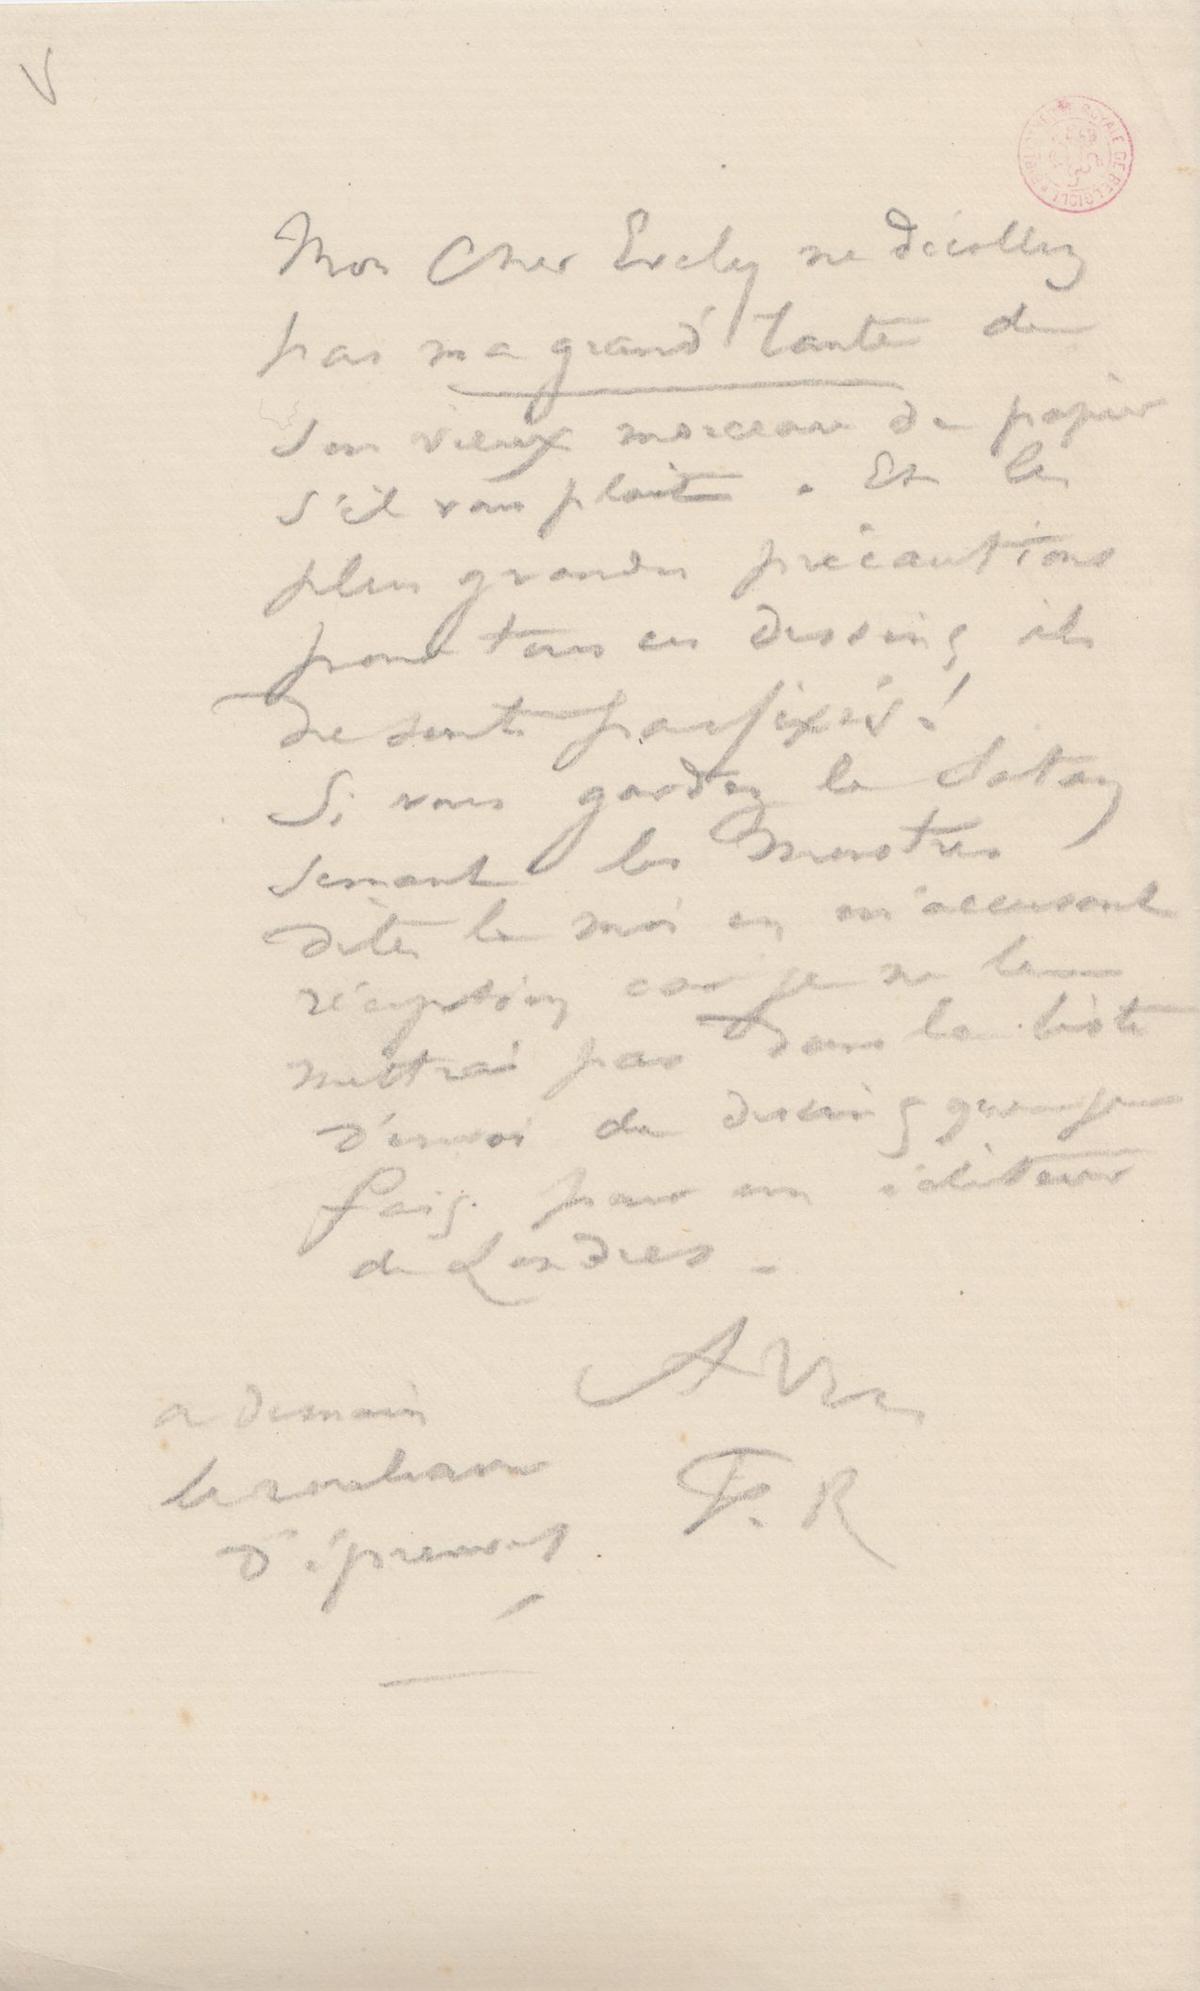 BIBLIOTHEQUE ROYALE DE BELGIQUE
Mon Cher Evely ne décollez
pas ma grand' tante de
son vieux morceau de papier
s'il vous plait. Et les
plus grandes précautions
pour tous ces dessins, ils
ne sont pas fixés!
Si vous gardez le Satan
semant les Monstres
dites le moi en m'accusant
réception car je ne le
mettrai pas dans la liste
d'envoi de dessins que je
fais pour un éditeur
de Londres.
A Vs
F. R
a demain
le rouleau
d'épreuves